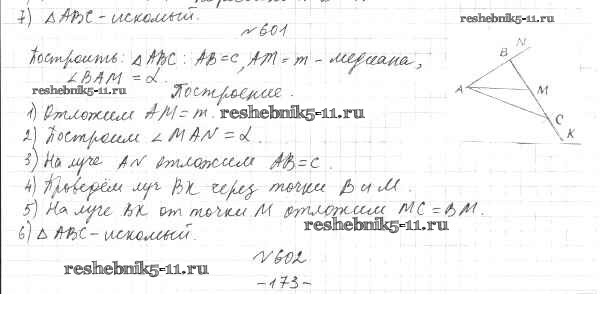 7) △ABC - искомый.
reshebnik5-11.ru
№601
Построить: △ABC: AB=c, AM=m - медиана,
∠BAM = α.
reshebnik5-11.ru
Построение.
1) Отложим AM=m. reshebnik5-11.ru
2) Построим ∠MAN=α.
3) На луче AN отложим AB=c.
4) Проведём луч BK через точки B и M.
5) На луче BK от точки M отложим MC=BM.
reshebnik5-11.ru
6) △ABC - искомый.
№602
reshebnik5-11.ru
-173-
N
B
A
M
C
K